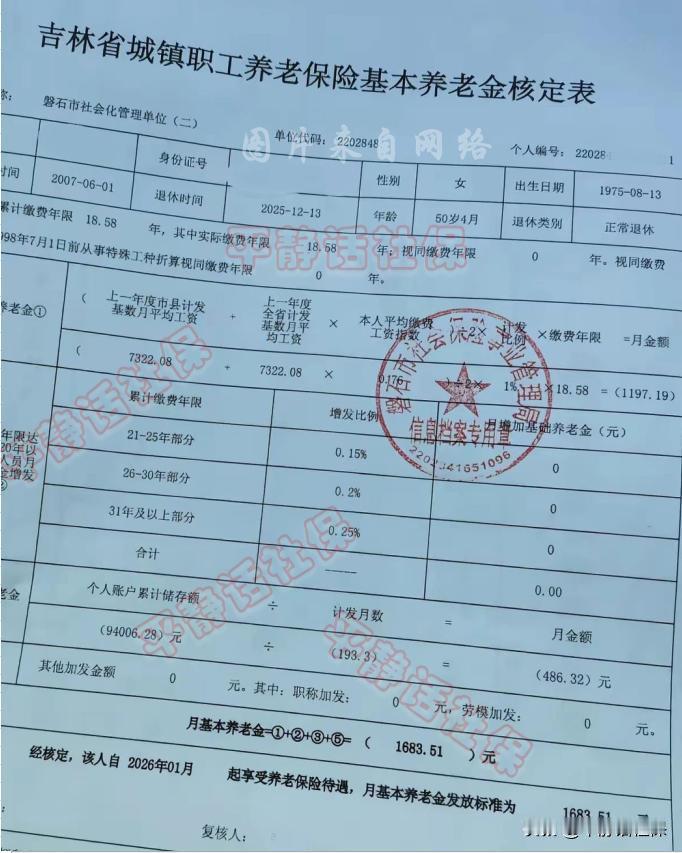 吉林省城镇职工养老保险基本养老金核定表
称： 磐石市社会化管理单位（二） 单位代码： 2202848 个人编号： 220284 1
图片来自网络
身份证号 性别 女 出生日期 1975-08-13
时间 2007-06-01 退休时间 2025-12-13 年龄 50岁4月 退休类别 正常退休
累计缴费年限 18.58 年，其中实际缴费年限 18.58 年；视同缴费年限 0 年。视同缴费
998年7月1日前从事特殊工种折算视同缴费年限 0 年。
平静话社保
养老金① （ 上一年度市县计发基数月平均工资 + 上一年度全省计发基数月平均工资 × 本人平均缴费工资指数 ）÷2× 计发比例 ×缴费年限 =月金额
（ 7322.08 + 7322.08 × 0.76 ）÷2× 1% ×18.58 =（1197.19）
累计缴费年限 增发比例 月增加基础养老金（元）
年限达
20年以
人员月
金增发
21-25年部分 0.15% 0
26-30年部分 0.2% 0
31年及以上部分 0.25% 0
合计 ---- 0.00
磐石市社会保险事业管理局
信息档案专用章
2202841651096
平静话社保
老金 个人账户累计储存额 ÷ 计发月数 = 月金额
（94006.28）元 ÷ （193.3） = （486.32）元
平静话社保
其他加发金额 0 元。其中：职称加发： 0 元，劳模加发： 0 元。
月基本养老金=①+②+③+⑤= （ 1683.51 ）元
平静话社保
经核定，该人自 2026年01月 起享受养老保险待遇，月基本养老金发放标准为 1683.51 元
复核人：
头条 @平静话社保